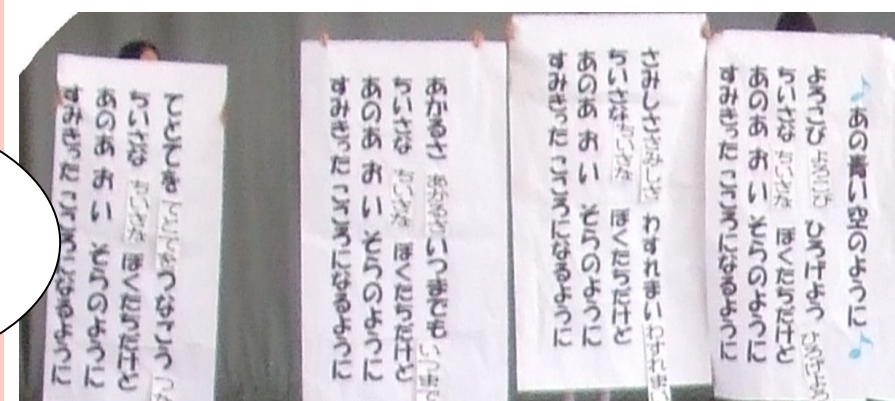 ♪あの青い空のように♪
よろこび よろこび ひろげよう ひろげよう
ちいさな ちいさな ぼくたちだけど
あのあ おい そらのように
すみきった こころになるように
さみしさ さみしさ わすれまい わすれまい
ちいさな ちいさな ぼくたちだけど
あのあ おい そらのように
すみきった こころになるように
あかるさ あかるさ いつまでも いつまで
ちいさな ちいさな ぼくたちだけど
あのあ おい そらのように
すみきった こころになるように
てとてを てとてを つなごう つな
ちいさな ちいさな ぼくたちだけど
あのあ おい そらのように
すみきった こころになるように